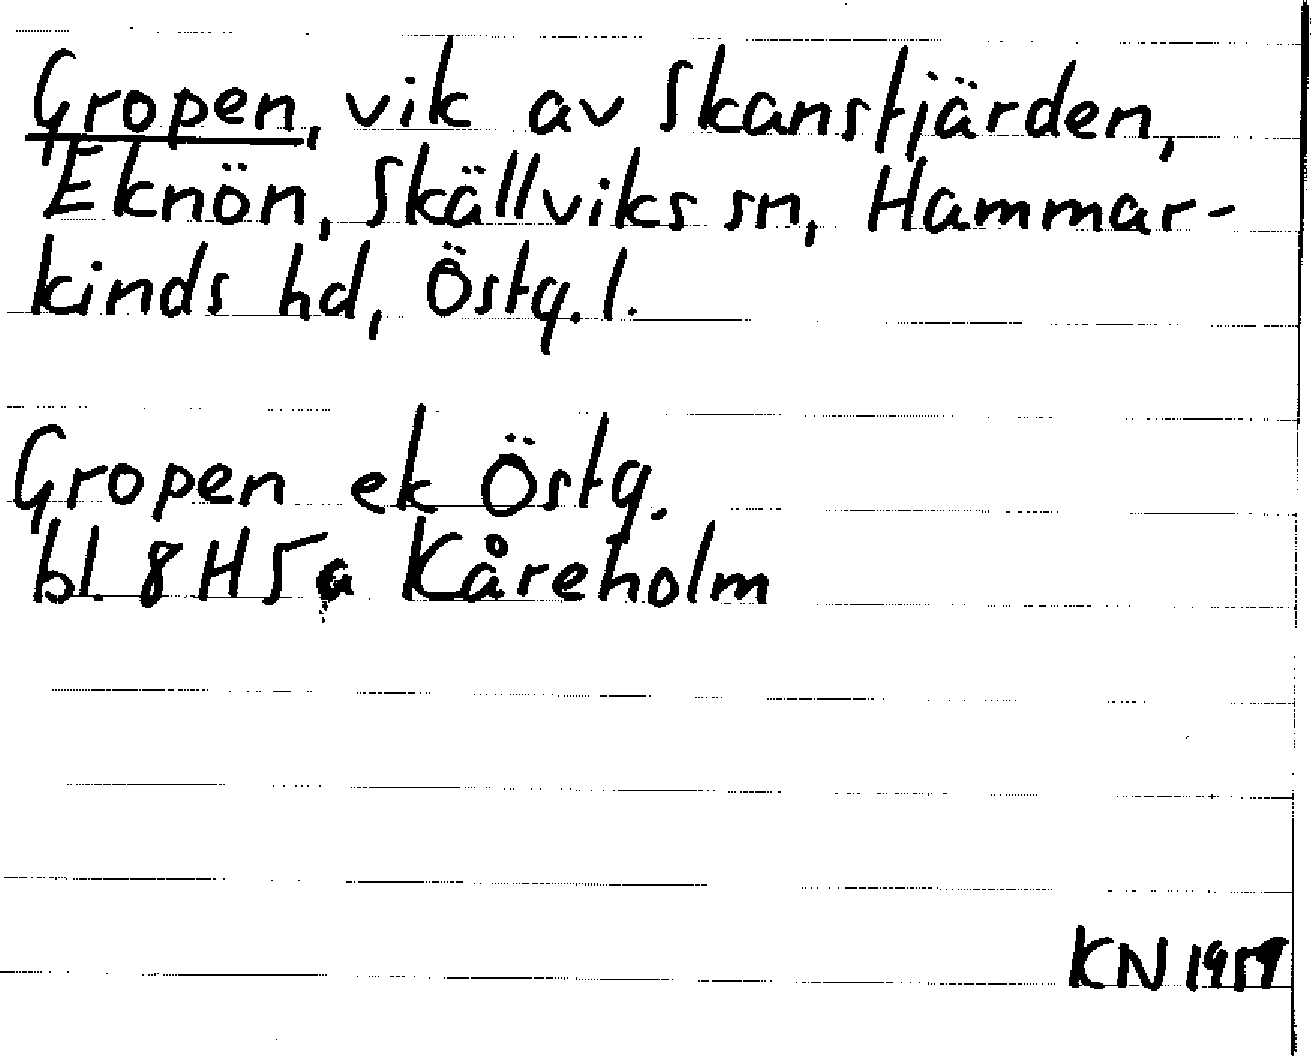 Gropen, vik av Skansfjärden,
Eknön, Skällviks sn, Hammar-
kinds hd, Östg. l.
Gropen ek Östg.
bl. 8 H 5 a Kåreholm
KN 1959